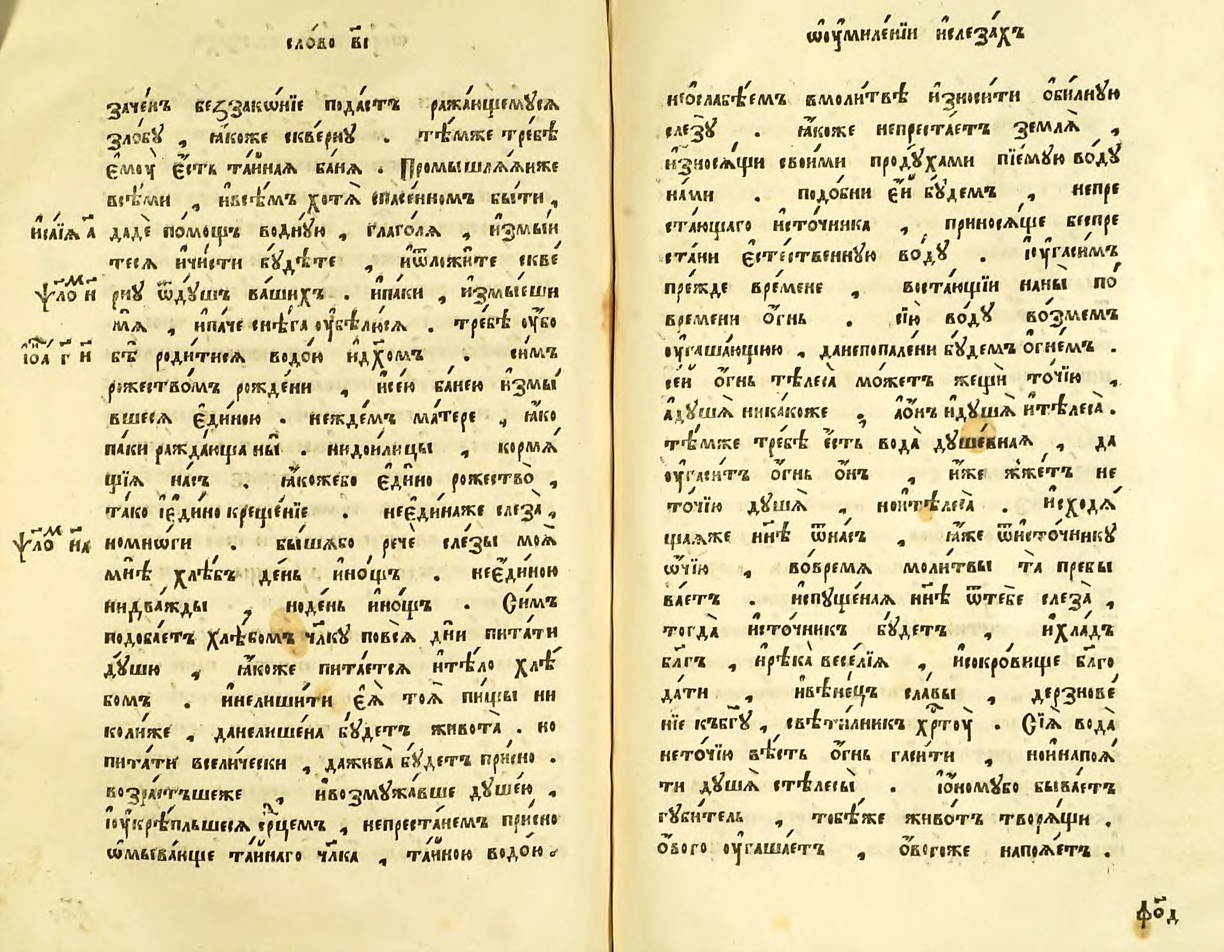 сло́во в҃і
заче́нъ беззако́нїе подае́тъ ража́ющемꙋся
зло́бꙋ , ꙗ́коже скве́рнꙋ . тѣ́мже тре́бѣ
є҆моу̀ є҆́сть та́йнаѧ ба́нѧ . Промышлѧ́ѧиже
всѣ́ми , ивсѣ́мъ хотѧ̀ спасе́ннѡм бы́ти ,
иса́їѧ а҃ дадѐ по́мощъ во́днꙋю , гл҃аго́лѧ , и҆змы́й
тесѧ ичи́сти бꙋ́дѣте , иѿложи́те скве́
ѱало́м н҃ рнꙋ ѿдꙋ́шъ ва́шихъ . ипа́ки , и҆змы́еши
мѧ , ипа́че снѣ́га оу҆бѣлю́сѧ . тре́бѣ оу҆́бо
іѡа́ г҃ н҃ бѣ̀ роди́тисѧ водо́ю идх҃омъ . си́мъ
рожество́мъ рожде́ни , исе́ю ба́нею и҆змы́
вшесѧ є҆ди́ною . неждѐмъ ма́тере , ꙗ҆́ко
па́ки ража́юща ны̀ . нидои́лицы , кормѧ́
щїѧ на́съ . ꙗ҆́кожебо є҆ди́но рожество̀ ,
та́ко ієди́но креще́нїе . неєди́наже слеза̀ ,
ѱало́м м҃а номнѡ́ги . бы́шабо речѐ сле́зы моѧ̀
мнѣ̀ хлѣ́бъ де́нь ино́щъ . неєди́ною
нидва́жды ,ноде́нь ино́щъ . Си́мъ
подоба́етъ хлѣ́бомъ чл҃кꙋ повсѧ̀ дн҃и пита́ти
дꙋ́шю , ꙗ҆́коже пита́етсѧ ите́ло хлѣ́
бомъ . инелиши́ти є҆ѧ̀ тоѧ̀ пи́щы ни
коли́же , данелише́на бꙋ́детъ живота̀ . но
пита́ти всели́чески , дажива̀ бꙋ́детъ при́сно .
возра́стъшеже , ивозмꙋжа́вше дꙋше́ю ,
іоу҆крѣ́пльшесѧ ср҃цемъ , непреста́немъ при́сно
ѡ҆мыва́юще та́йнаго чл҃ка , та́йною водо́ю .
ѡ҆оу҆миле́нїи ислеза́хъ
неѡслабѣ́емъ вмоли́твѣ и҆зноси́ти ѻ҆би́лнꙋю
сле́зꙋ . ꙗ҆́коже непреста́етъ землѧ̀ ,
и҆зносѧ́щи свои́ми про́дꙋхами пїе́мꙋю во́дꙋ
на́ми . подо́бни є҆́й бꙋ́демъ , непре
ста́ющаго исто́чника , приносѧ́ще беспре
ста́ни є҆сте́ственнꙋю во́дꙋ . іоу҆гаси́мъ
пре́жде вре́мене , воста́ющїи наны̀ по́
времени ѻ҆́гнь . сїю̀ во́дꙋ во́змемъ
оу҆гаша́ющюю , данепопале́ни бꙋ́демъ ѻ҆гне́мъ .
се́й ѻ҆́гнь тѣлеса̀ мо́жетъ жещѝ то́чїю ,
адꙋ́шѧ ника́коже , аѻ҆́нъ идꙋ́шѧ итѣлеса̀ .
тѣ́мже тре́бѣ є҆́сть вода̀ дꙋше́внаѧ , да
оу҆гаси́тъ ѻ҆́гнь ѻ҆́нъ , и҆́же жже́тъ не
то́чїю дꙋ́шѧ , ноитѣлеса̀ . исходѧ́
щаѧже нн҃ѣ ѿна́съ , ꙗ҆́же ѿисто́чникꙋ
ѻ҆́чїю , вовре́мѧ моли́твы та̀ пребы
ва́етъ . испꙋще́наѧ нн҃ѣ ѿтебѐ слеза̀ ,
тогда̀ исто́чникъ бꙋ́детъ , ихла́дъ
бл҃гъ , ирѣка̀ весе́лїѧ , исокро́вище бл҃го
да́ти , ивѣне́цъ сла́вы , дерзнове́
нїе къбг҃ꙋ , свѣти́лникъ хр҃тоу̀ . Сїѧ̀ вода̀
нето́чїю вѣ́сть ѻ҆́гнь гаси́ти , ноинапоѧ́
ти дꙋ́шѧ стѣлесы̀ . іѻ҆номꙋ́бо быва́етъ
гꙋби́тель , тобѣ́же живо́тъ творѧ́щи .
ѻ҆́вого оу҆гаша́етъ , ѻ҆́вогоже напоѧ́етъ .
ф҃ѻд